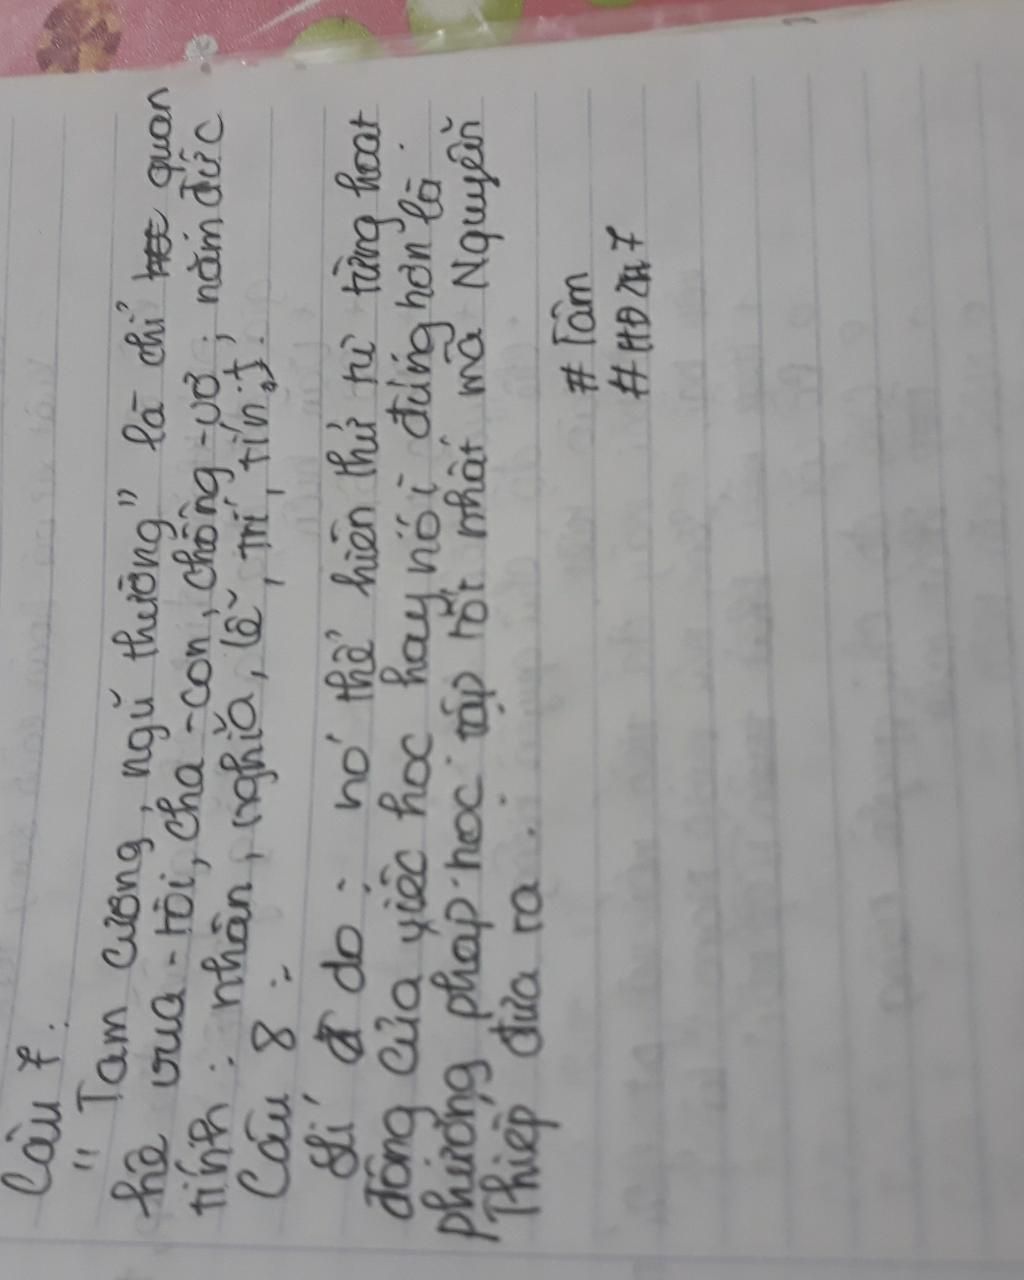 Câu 7.
" Tam cương, ngũ thường" là chỉ quan
hệ vua - tôi, cha - con, chồng - vợ; năm đức
tính : nhân, nghĩa, lễ, trí, tín.
Câu 8 :
Lí do : nó thể hiện thứ tự từng hoạt
động của việc học hay nói đúng hơn là
phương pháp học tập tốt nhất mà Nguyễn
Thiếp đưa ra.
# Tâm